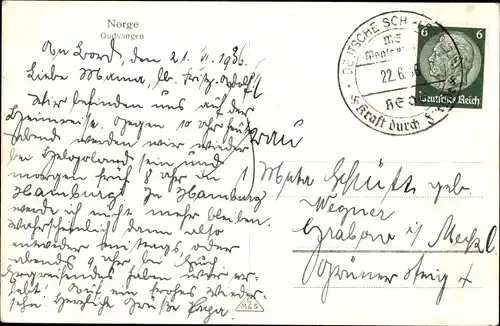 Norge
Gudvangen
An Bord, den 21. VI. 1936.
Liebe Mama, lb. Fritz-Adolf!
Wir befinden uns auf der
Heimreise. Gegen 10 Uhr heut
abend werden wir wieder
bei Helgoland sein und
morgen früh 8 Uhr in
Hamburg. In Hamburg
werde ich nicht mehr bleiben.
Wahrscheinlich dann also
entweder mittags, oder
abends 9 Uhr bei Euch.
haben wir er-
lebt! Auf ein frohes Wieder-
sehn. Herzliche Grüße Papa.
DEUTSCHE SCH
MS
Monte
22.6.36
Kraft durch
6 6
Deutsches Reich
Frau
Meta Schütt geb.
Wegner
Grabow i/ Meckl.
Grüner Steig 4
M&S